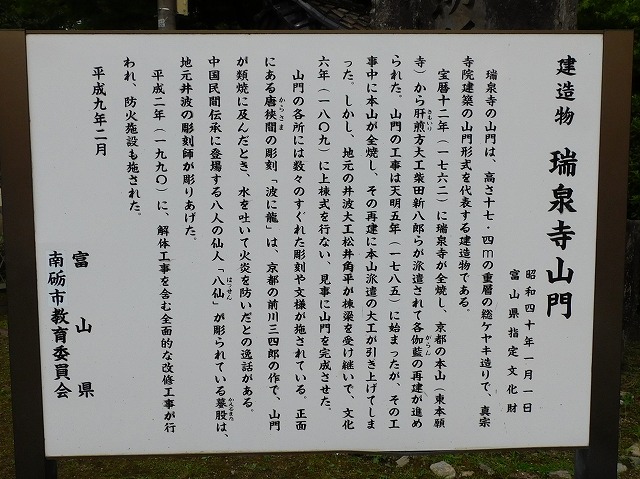 建造物　瑞泉寺山門
昭和四十年一月一日
富山県指定文化財
瑞泉寺の山門は、高さ十七・四mの重層の総ケヤキ造りで、真宗
寺院建築の山門形式を代表する建造物である。
宝暦十二年（一七六二）に瑞泉寺が全焼し、京都の本山（東本願
寺）から肝煎方大工柴田新八郎らが派遣されて各伽藍の再建が進め
られた。山門の工事は天明五年（一七八五）に始まったが、その工
事中に本山が全焼し、その再建に本山派遣の大工が引き上げてしま
った。しかし、地元の井波大工松井角平が棟梁を受け継いで、文化
六年（一八〇九）に上棟式を行ない、見事に山門を完成させた。
山門の各所には数々のすぐれた彫刻や文様が施されている。正面
にある唐狭間の彫刻「波に龍」は、京都の前川三四郎の作で、山門
が類焼に及んだとき、水を吐いて火炎を防いだとの逸話がある。
中国民間伝承に登場する八人の仙人「八仙」が彫られている蟇股は、
地元井波の彫刻師が彫りあげた。
平成二年（一九九〇）に、解体工事を含む全面的な改修工事が行
われ、防火施設も施された。
平成九年二月
富山県
南砺市教育委員会